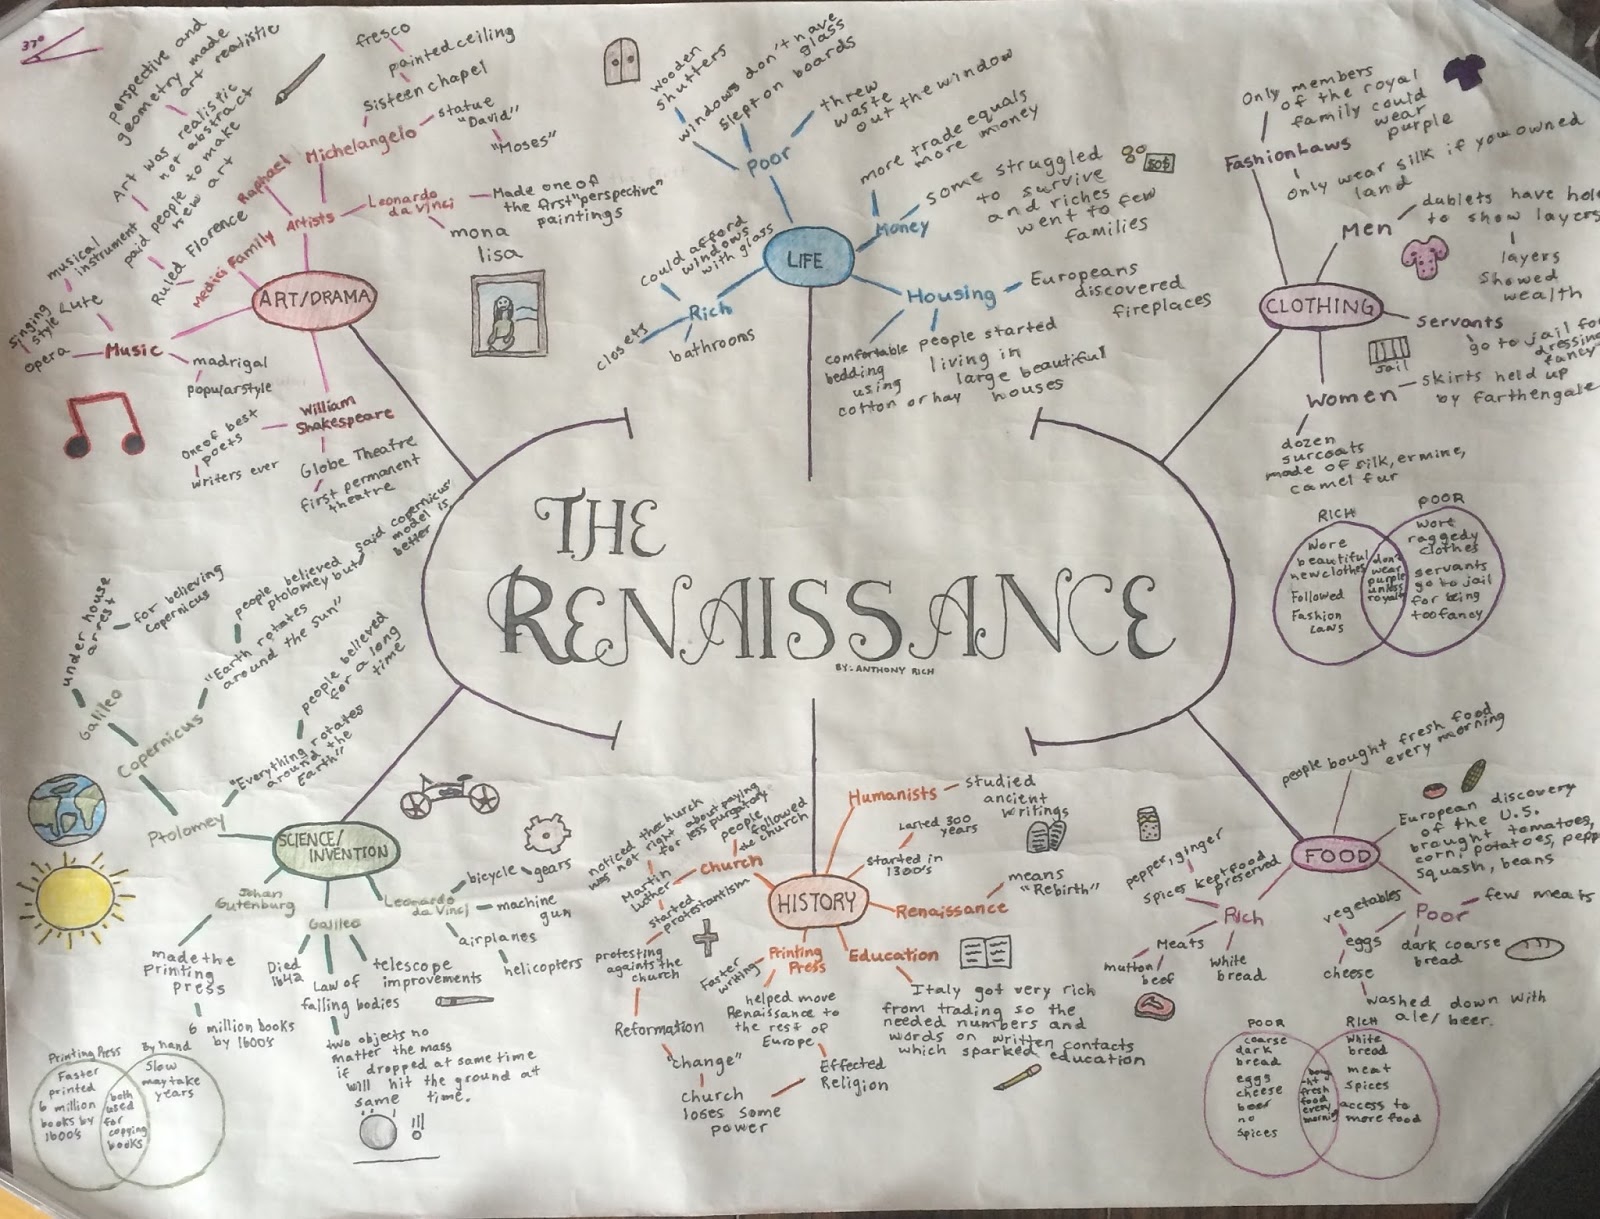 THE
RENAISSANCE
BY: ANTHONY RICH
37°
ART/DRAMA
Artists
Michelangelo
sisteen chapel
painted ceiling
fresco
statue
"David"
"Moses"
Raphael
Leonardo
da Vinci
Made one of
the first "perspective"
paintings
mona
lisa
Medici Family
Ruled Florence
paid people to make
new art
Art was realistic
not abstract
perspective and
geometry made
art realistic
Music
Lute
musical
instrument
opera
singing
style
madrigal
popular style
William
Shakespeare
one of best
poets
writers ever
Globe Theatre
first permanent
theatre
LIFE
Poor
windows don't have
glass
wooden
shutters
slept on boards
threw
waste
out the window
Money
more trade equals
more money
some struggled
to survive
and riches
went to few
families
50$
Housing
Europeans
discovered
fireplaces
people started
living in
large beautiful
houses
comfortable
bedding
using
cotton or hay
Rich
could afford
windows
with glass
closets
bathrooms
CLOTHING
Fashion Laws
Only members
of the royal
family could
wear
purple
Only wear silk if you owned
land
Men
dublets have hol
to show layers
layers
showed
wealth
Servants
go to jail fo
dressing
fancy
Jail
Women
skirts held up
by farthengale
dozen
surcoats
made of silk, ermine,
camel fur
RICH
Wore
beautiful
new clothes
Followed
Fashion
Laws
don't
wear
purple
unless
royalty
POOR
Wore
raggedy
clothes
servants
go to jail
for being
too fancy
SCIENCE/
INVENTION
Ptolomey
"Everything rotates
around the
Earth"
people believed
for a long
time
Copernicus
"Earth rotates
around the Sun"
people believed
ptolomey but
said copernicus'
model is
better
Galileo
under house
arrest
for believing
Copernicus
Johan
Gutenburg
made the
printing
press
6 million books
by 1600's
Galileo
Died
1642
Law of
falling bodies
two objects no
matter the mass
if dropped at same time
will hit the ground at
same time.
telescope
improvements
Leonardo
da Vinci
bicycle
gears
machine
gun
airplanes
helicopters
Printing Press
Faster
printed
6 million
books by
1600's
both
used
for
copying
books
By hand
Slow
may take
years
HISTORY
Humanists
studied
ancient
writings
Lasted 300
years
started in
1300's
Renaissance
means
"Rebirth"
Education
Italy got very rich
from trading so the
needed numbers and
words on written contacts
which sparked education
Printing
Press
Faster
writing
helped move
Renaissance to
the rest of
Europe
Effected
Religion
Church
people
followed
the church
Martin
Luther
noticed the church
was not right about paying
for less purgatory
started
protestantism
protesting
againts the
church
Reformation
"change"
church
loses some
power
FOOD
people bought fresh food
every morning
European discovery
of the U.S.
brought tomatoes,
corn, potatoes, pepp
squash, beans
Poor
few meats
dark coarse
bread
vegetables
eggs
cheese
washed down with
ale/beer.
Rich
Spices kept food
preserved
pepper, ginger
Meats
mutton/
beef
white
bread
POOR
coarse
dark
bread
eggs
cheese
beer
no
spices
boug
-ht
fresh
food
every
morning
RICH
White
bread
meat
spices
access to
more food